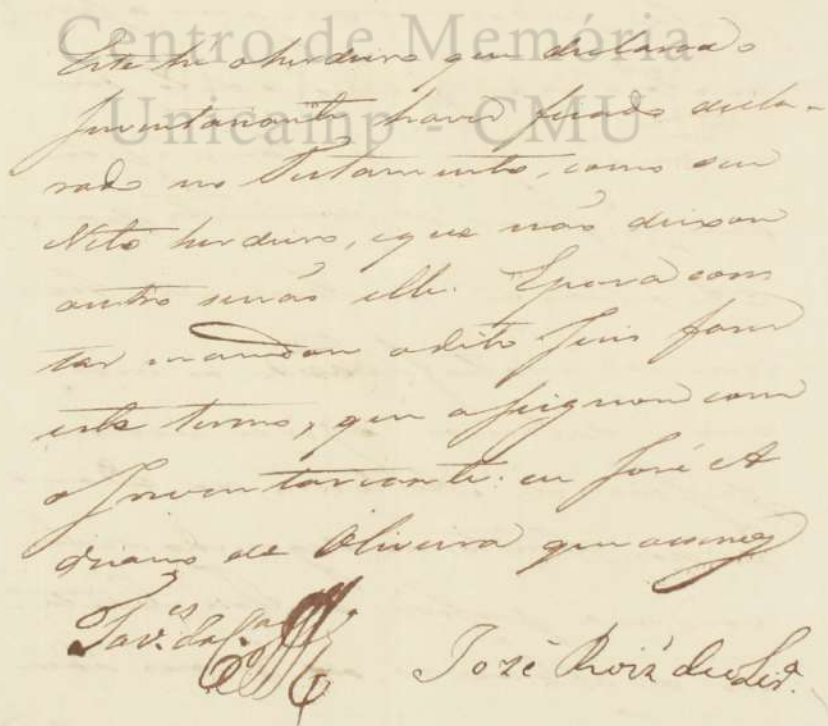 Centro de Memória
Unicamp - CMU
Este hé o herdeiro que declarou o
Inventariante haver ficado decla-
rado no Testamento, como seu
Neto herdeiro, e que não deixou
outro senão elle. E para cons
tar mandou o dito Juis faser
este termo, que assignou com
o Inventariante: eu José A
driano de Oliveira que escrevy
Tav.es da
José Roiz de